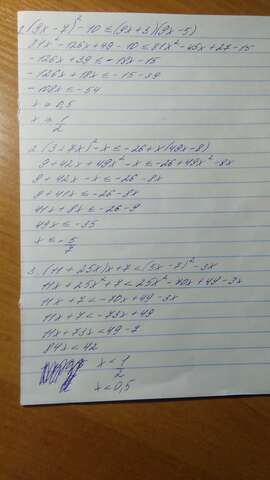 1. (9x - 7)² - 10 ≤ (9x + 3)(9x - 5)
81x² - 126x + 49 - 10 ≤ 81x² - 45x + 27 - 15
-126x + 39 ≤ -18x - 15
-126x + 18x ≤ -15 - 39
-108x ≤ -54
x ≥ 0,5
x ≥ 1/2
2. (3 + 7x)² - x ≤ -26 + x(49x - 8)
9 + 42x + 49x² - x ≤ -26 + 49x² - 8x
9 + 42x - x ≤ -26 - 8x
9 + 41x ≤ -26 - 8x
41x + 8x ≤ -26 - 9
49x ≤ -35
x ≤ - 5/7
3. (11 + 25x)x + 7 < (5x - 7)² - 3x
11x + 25x² + 7 < 25x² - 70x + 49 - 3x
11x + 7 < -70x + 49 - 3x
11x + 7 < -73x + 49
11x + 73x < 49 - 7
84x < 42
x < 1/2
x < 0,5